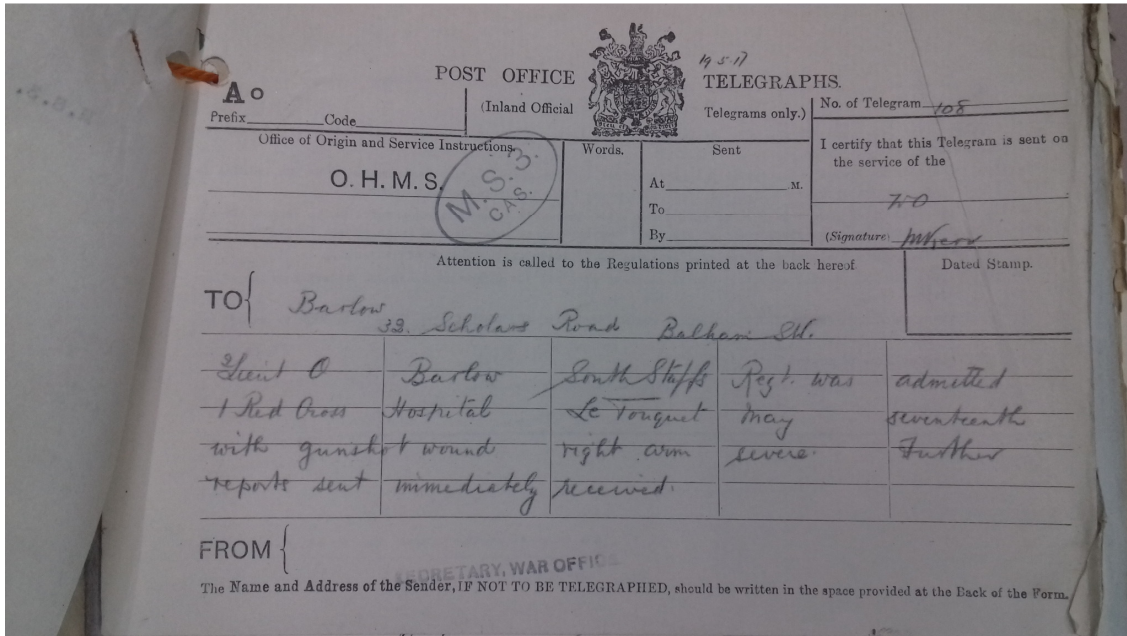 19.5.17
POST OFFICE TELEGRAPHS.
A o
(Inland Official Telegrams only.)
No. of Telegram 108
Prefix Code
Office of Origin and Service Instructions.
Words.
Sent
I certify that this Telegram is sent on
the service of the
O.H.M.S.
M.S.3.
CAS.
At M.
To
WO
By
(Signature)
Attention is called to the Regulations printed at the back hereof
Dated Stamp.
TO
Barlow
33. Scholars Road Balham SW.
2/Lieut O Barlow South Staffs Regt. was admitted
1 Red Cross Hospital Le Touquet May seventeenth
with gunshot wound right arm severe. Further
reports sent immediately received.
FROM
SECRETARY, WAR OFFICE
The Name and Address of the Sender, IF NOT TO BE TELEGRAPHED, should be written in the space provided at the Back of the Form.